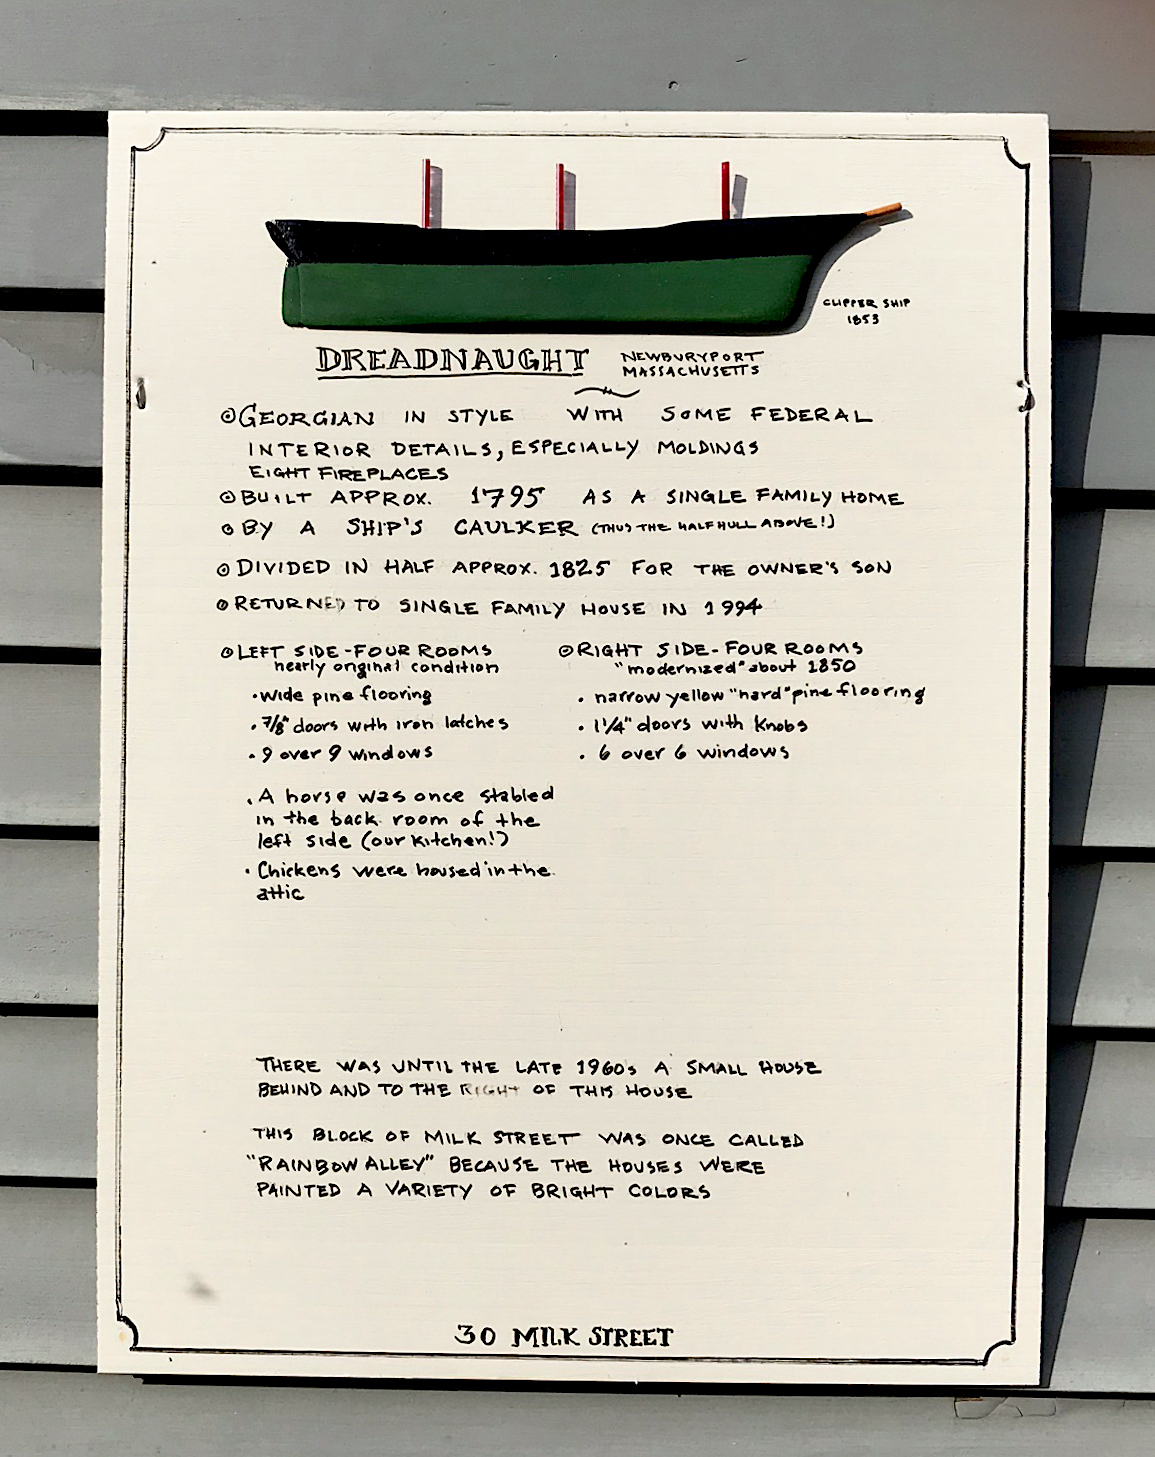 CLIPPER SHIP
1853
DREADNAUGHT
NEWBURYPORT
MASSACHUSETTS
GEORGIAN IN STYLE WITH SOME FEDERAL
INTERIOR DETAILS, ESPECIALLY MOLDINGS
EIGHT FIREPLACES
BUILT APPROX. 1795 AS A SINGLE FAMILY HOME
BY A SHIP'S CAULKER (THUS THE HALF HULL ABOVE!)
DIVIDED IN HALF APPROX. 1825 FOR THE OWNER'S SON
RETURNED TO SINGLE FAMILY HOUSE IN 1994
LEFT SIDE-FOUR ROOMS
nearly original condition
• Wide pine flooring
• 7/8" doors with iron latches
• 9 over 9 windows
• A horse was once stabled
in the back room of the
left side (our kitchen!)
• Chickens were housed in the
attic
RIGHT SIDE-FOUR ROOMS
"modernized" about 1850
• narrow yellow "hard" pine flooring
• 1 1/4" doors with knobs
• 6 over 6 windows
THERE WAS UNTIL THE LATE 1960s A SMALL HOUSE
BEHIND AND TO THE RIGHT OF THIS HOUSE
THIS BLOCK OF MILK STREET WAS ONCE CALLED
"RAINBOW ALLEY" BECAUSE THE HOUSES WERE
PAINTED A VARIETY OF BRIGHT COLORS
30 MILK STREET